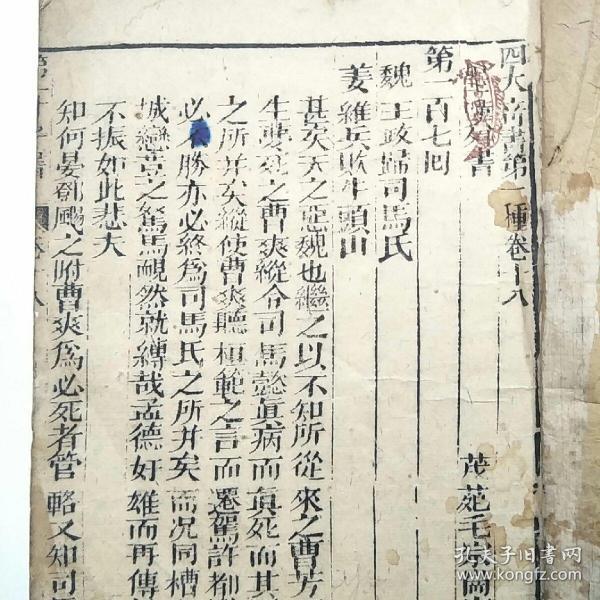 四大奇書第一種卷十八
聖嘆外書
茂苑毛宗崗
第一百七回
魏主政歸司馬氏
姜維兵敗牛頭山
甚矣天之惡魏也繼之以不知所從來之曹芳
生夢死之曹爽縱令司馬懿眞病而眞死而其
之所并矣縱使曹爽聽桓範之言而遷駕許都
必不勝亦必終爲司馬氏之所并矣而况同槽
城戀荳之駑馬靦然就縛哉孟德奸雄而再傳
不振如此悲夫
知何晏鄧颺之附曹爽爲必死者管輅又知司
孔夫子旧书网
www.kongfz.com